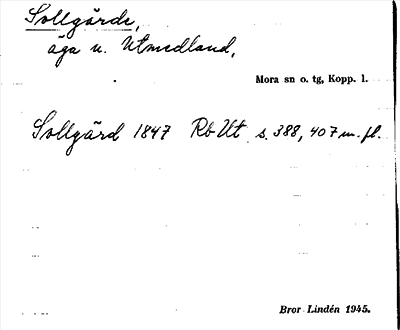 Sollgärde,
äga u. Utmedland,
Mora sn o. tg, Kopp. l.
Sollgärd 1847 Rb Ut s. 388, 407 m. fl.
Bror Lindén 1945.